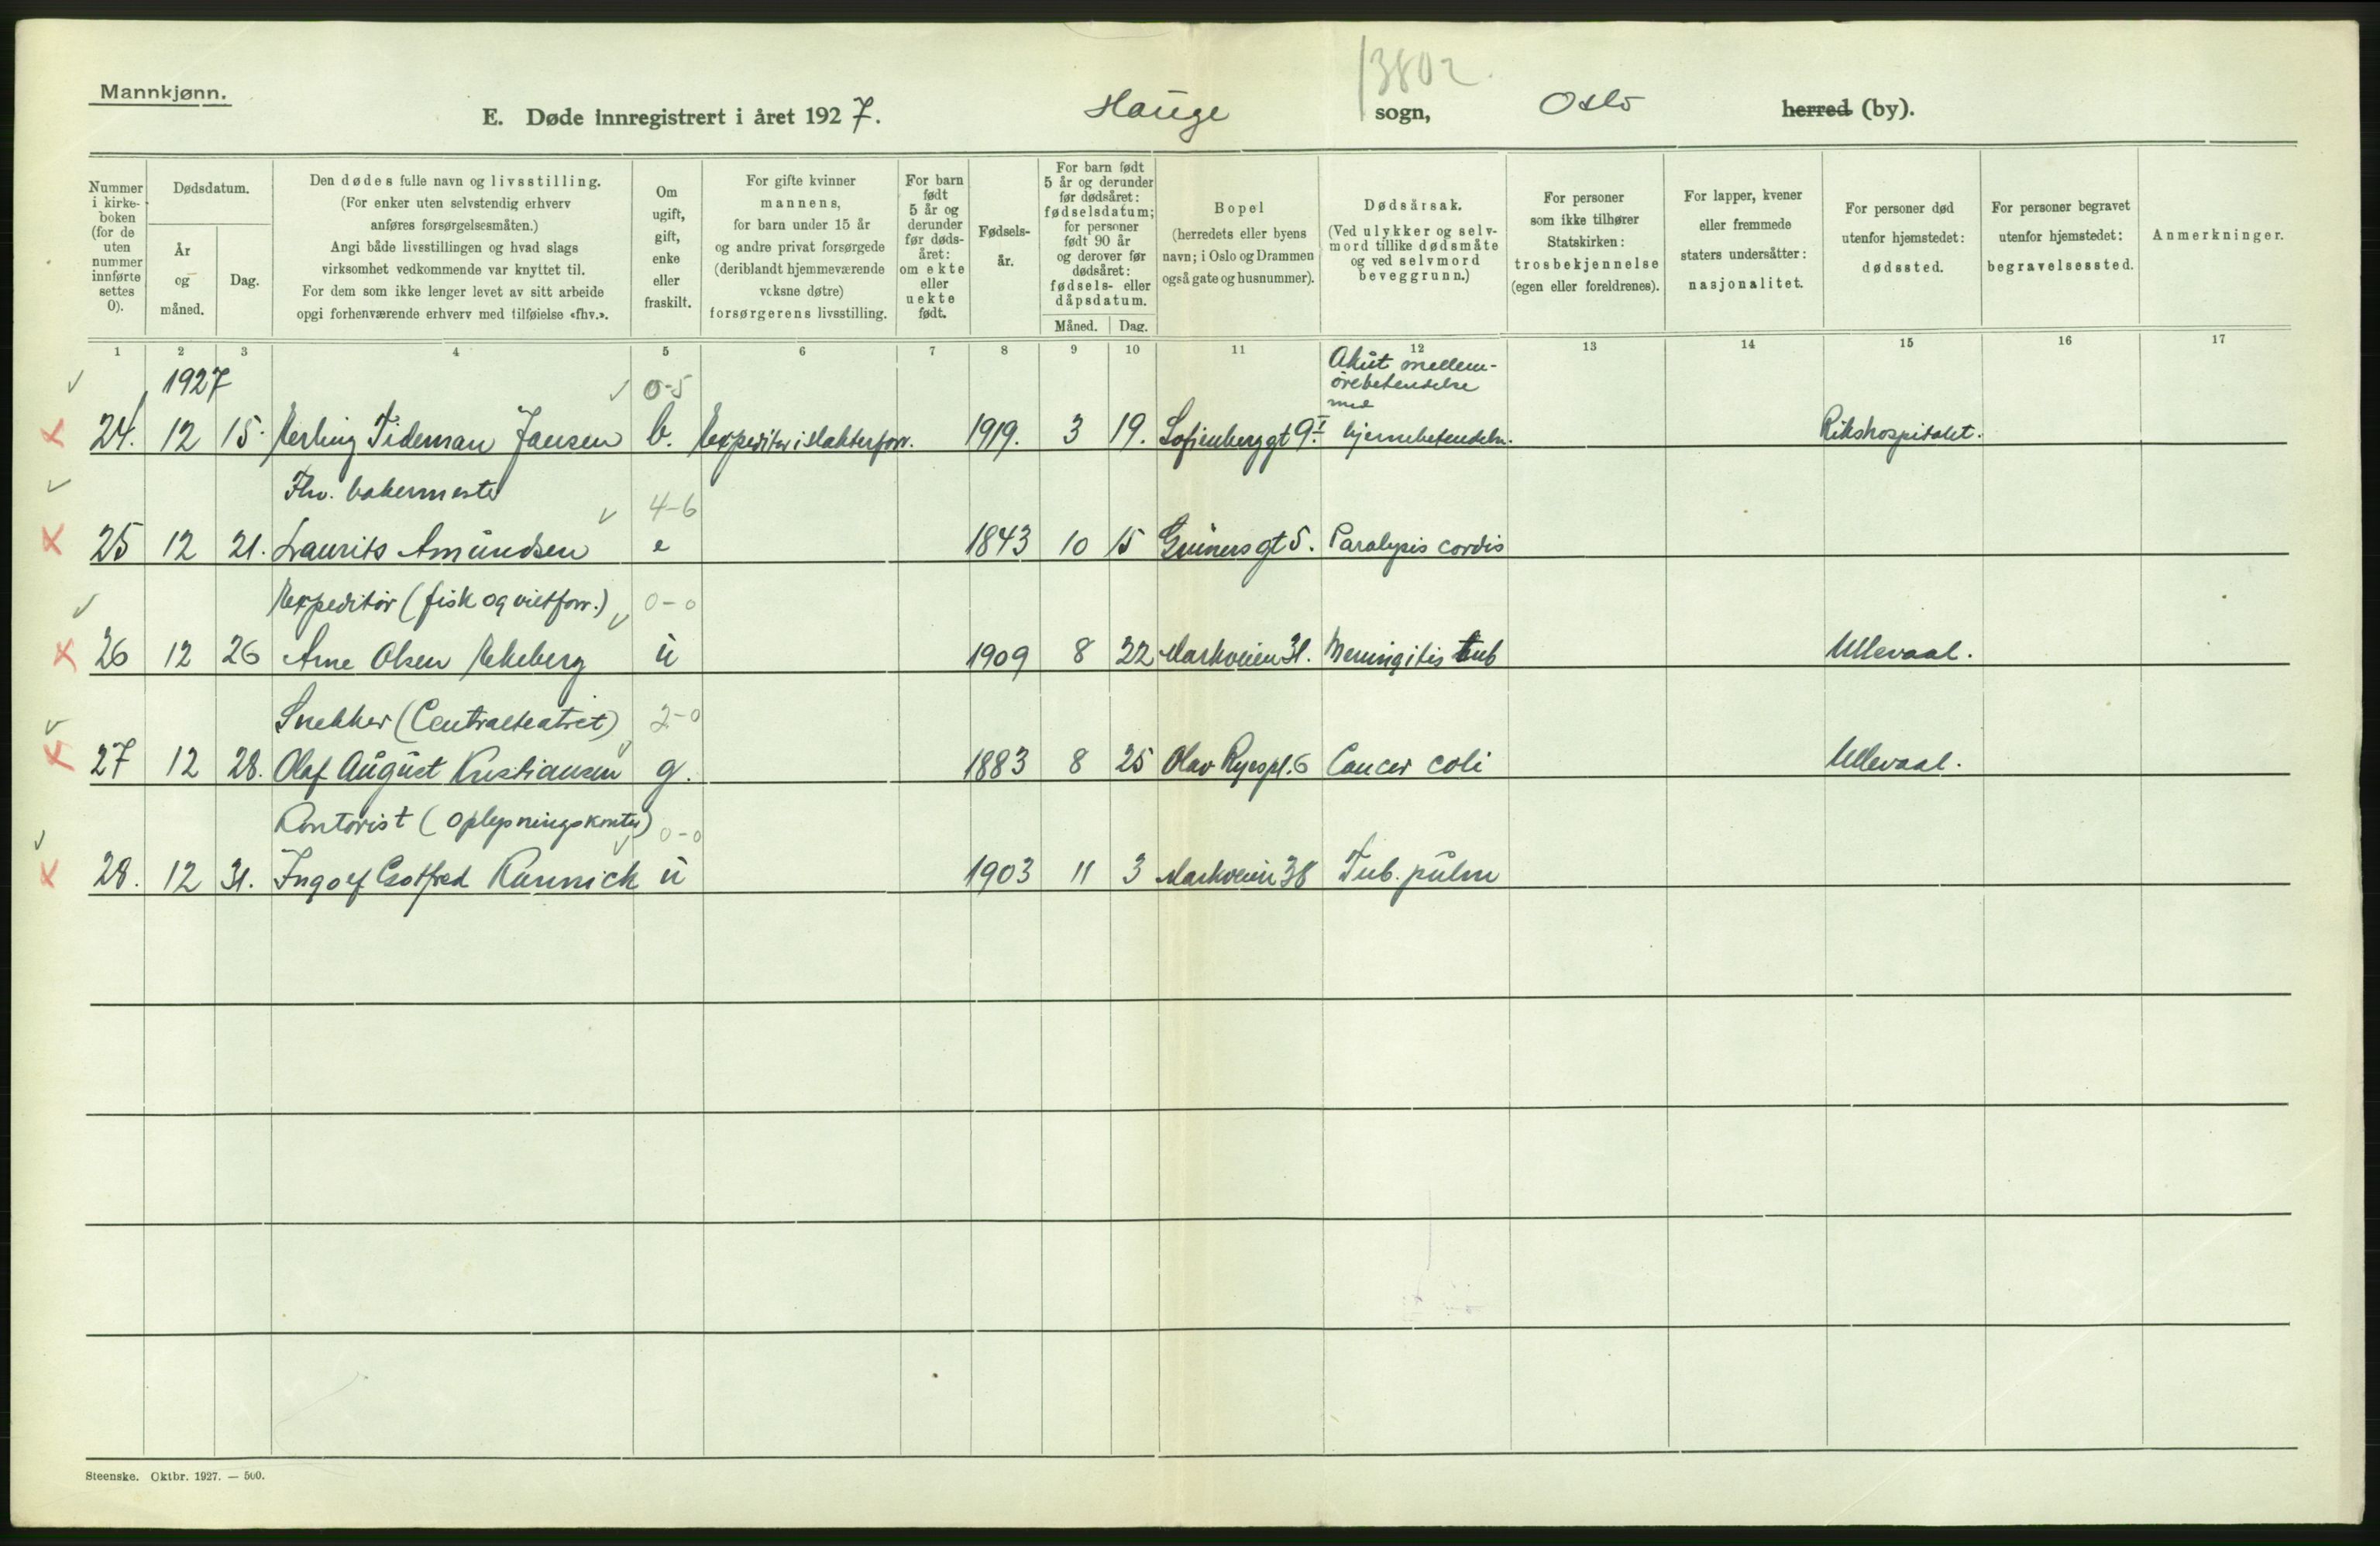 13802.
Mannkjønn.
E. Døde innregistrert i året 1927. Hauge sogn, Oslo herred (by).
Nummer i kirkeboken (for de uten nummer innførte settes 0).
Dødsdatum.
År og måned.
Dag.
Den dødes fulle navn og livsstilling.
(For enker uten selvstendig erhverv
anføres forsørgelsesmåten.)
Angi både livsstillingen og hvad slags
virksomhet vedkommende var knyttet til.
For dem som ikke lenger levet av sitt arbeide
opgi forhenværende erhverv med tilføielse «fhv.».
Om ugift, gift, enke eller fraskilt.
For gifte kvinner
mannens,
for barn under 15 år
og andre privat forsørgede
(deriblandt hjemmeværende
voksne døtre)
forsørgerens livsstilling.
For barn født 5 år og derunder før dødsåret: om ekte eller uekte født.
Fødselsår.
For barn født 5 år og derunder før dødsåret: fødselsdatum; for personer født 90 år og derover før dødsåret: fødsels- eller dåpsdatum.
Måned.
Dag.
Bopel
(herredets eller byens
navn; i Oslo og Drammen
også gate og husnummer).
Dødsårsak.
(Ved ulykker og selvmord tillike dødsmåte
og ved selvmord
beveggrunn.)
For personer
som ikke tilhører
Statskirken:
trosbekjennelse
(egen eller foreldrenes).
For lapper, kvener
eller fremmede
staters undersåtter:
nasjonalitet.
For personer død
utenfor hjemstedet:
dødssted.
For personer begravet
utenfor hjemstedet:
begravelsessted.
Anmerkninger.
1 2 3 4 5 6 7 8 9 10 11 12 13 14 15 16 17
1927 0-5 Akut mellem-
ørebetendelse
med
24. 12 15. Herling Tideman Jansen b. Expeditør i slakterforr. 1919. 3 19. Sofienberggt 9 I hjernebetendelse. Rikshospitalet.
Fhv. bakermester 4-6
25 12 21. Laurits Amundsen e 1843 10 15 Grüners gt 5. Paralysis cordis
Expeditør (fisk og viltforr.) 0-0
26 12 26 Arne Olsen Ekeberg u 1909 8 22 Markveien 31. Meningitis tub Ullevaal.
Snekker (Centralteatret) 2-0
27 12 28. Olaf August Kristiansen g. 1883 8 25 Olav Ryes pl. 6 Cancer coli Ullevaal.
Kontorist (Oplysningskontor) 0-0
28. 12 31. Ingolf Gotfred Rannick u 1903 11 3 Markveien 38 Tub. pulm
Steenske. Oktbr. 1927. — 500.